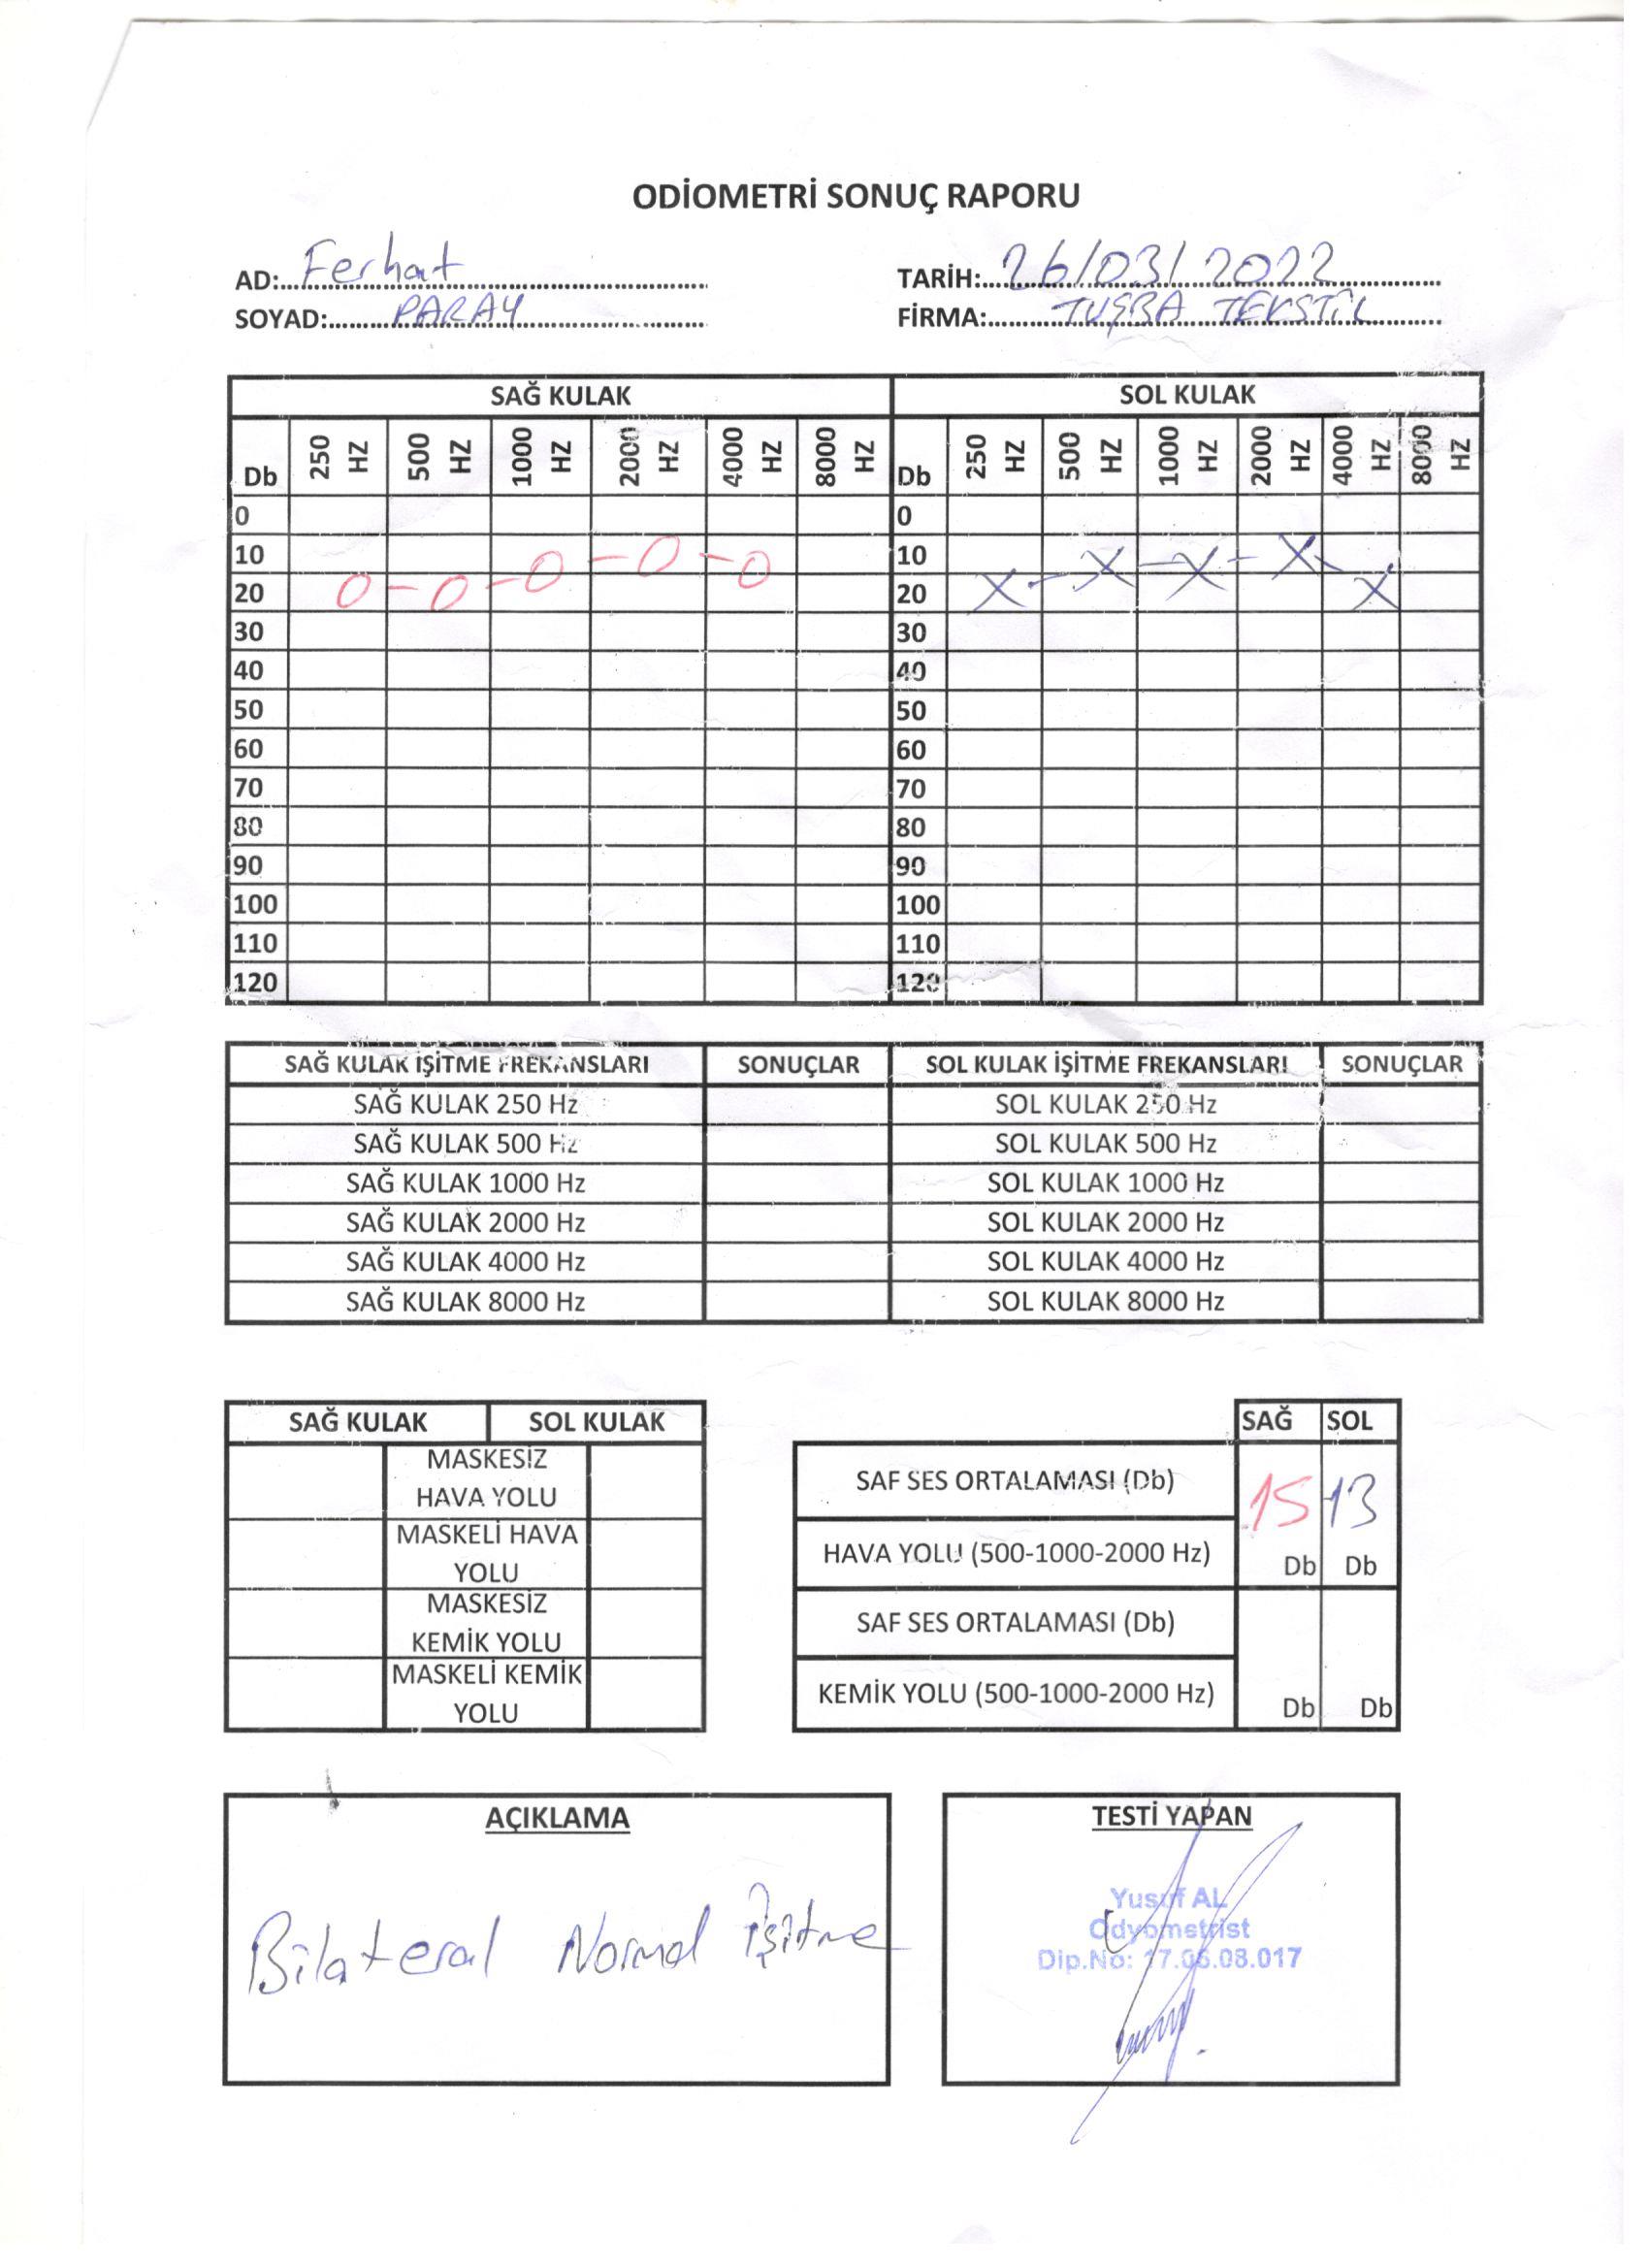 ODİOMETRİ SONUÇ RAPORU
AD: Ferhat TARİH: 26/03/2022
SOYAD: PARAY FİRMA: TUŞBA TEKSTİL
SAĞ KULAK SOL KULAK
Db 250 HZ 500 HZ 1000 HZ 2000 HZ 4000 HZ 8000 HZ Db 250 HZ 500 HZ 1000 HZ 2000 HZ 4000 HZ 8000 HZ
0 0
10 10
20 20
30 30
40 40
50 50
60 60
70 70
80 80
90 90
100 100
110 110
120 120
SAĞ KULAK İŞİTME FREKANSLARI SONUÇLAR SOL KULAK İŞİTME FREKANSLARI SONUÇLAR
SAĞ KULAK 250 Hz SOL KULAK 250 Hz
SAĞ KULAK 500 Hz SOL KULAK 500 Hz
SAĞ KULAK 1000 Hz SOL KULAK 1000 Hz
SAĞ KULAK 2000 Hz SOL KULAK 2000 Hz
SAĞ KULAK 4000 Hz SOL KULAK 4000 Hz
SAĞ KULAK 8000 Hz SOL KULAK 8000 Hz
SAĞ KULAK SOL KULAK
MASKESİZ
HAVA YOLU
MASKELİ HAVA
YOLU
MASKESİZ
KEMİK YOLU
MASKELİ KEMİK
YOLU
SAĞ SOL
SAF SES ORTALAMASI (Db) 15 13
HAVA YOLU (500-1000-2000 Hz) Db Db
SAF SES ORTALAMASI (Db)
KEMİK YOLU (500-1000-2000 Hz) Db Db
AÇIKLAMA
Bilateral Normal İşitme
TESTİ YAPAN
Yusuf AL
Odyometrist
Dip.No: 17.06.08.017